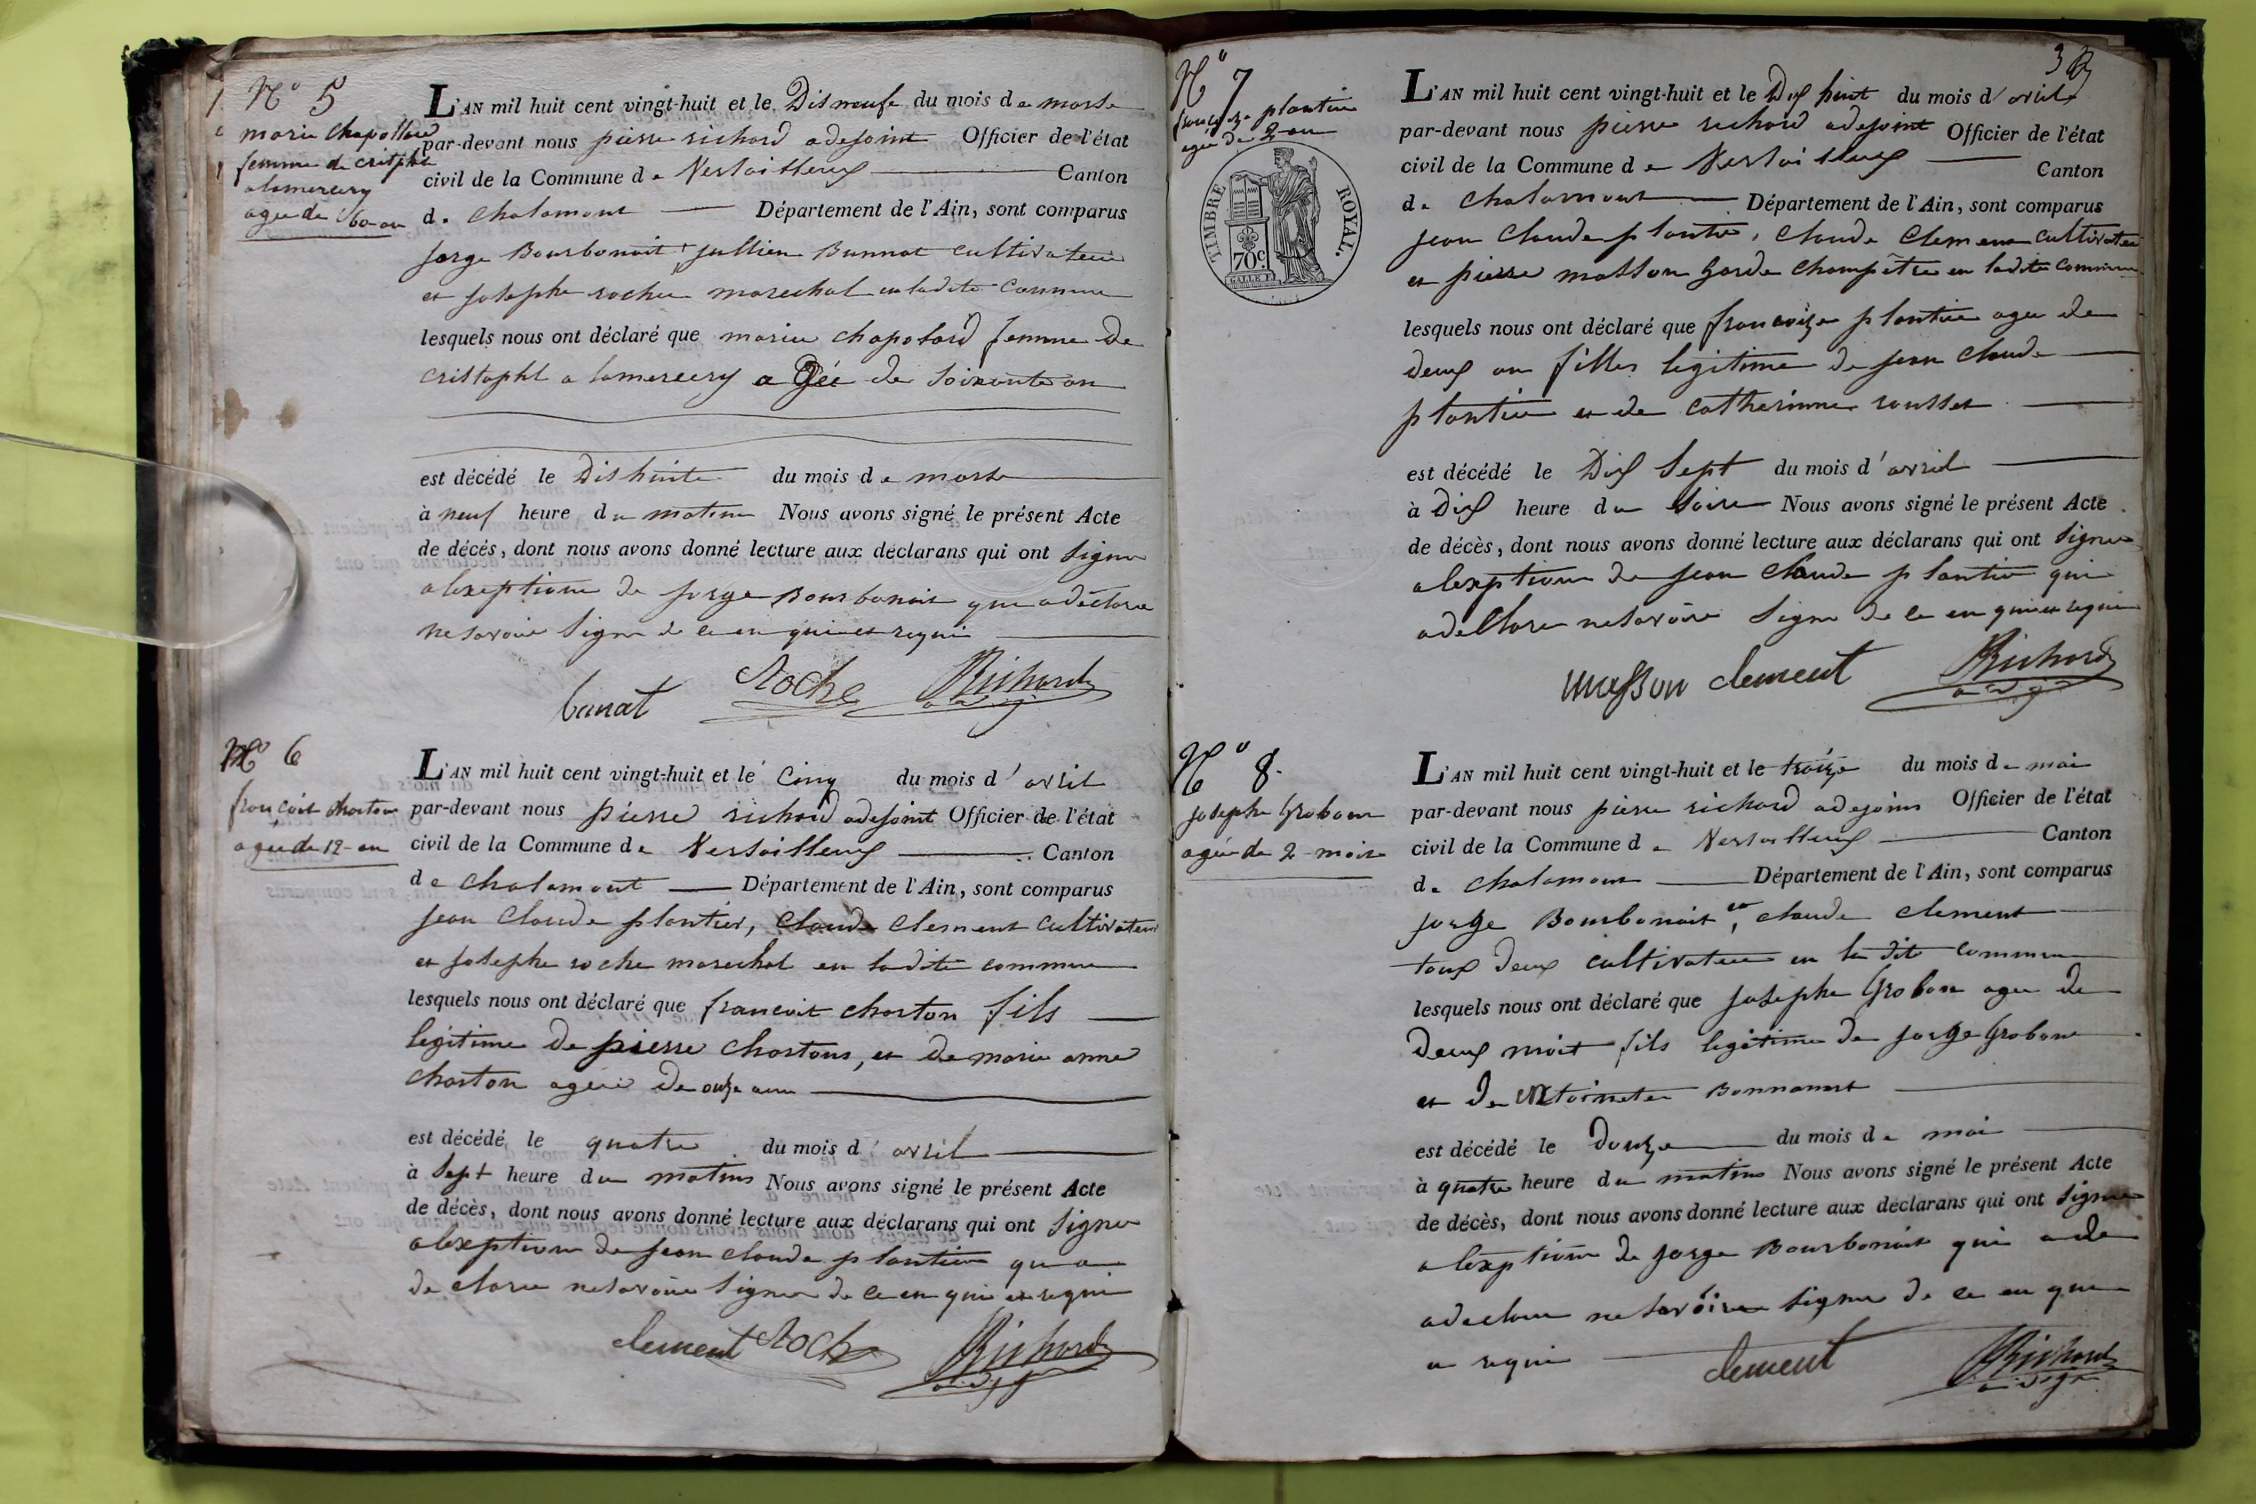 N° 5
marie chapollard
femme de cristphe
alamercery
agee de 60 an
L'AN mil huit cent vingt-huit et le Disneufe du mois de marse
par-devant nous pierre richard adejoint Officier de l'état
civil de la Commune de Versailleux Canton
de chalamont Département de l'Ain, sont comparus
jorge Bourbonait, jullien Bunnat cultivateur
et josephe roche marechal en ladite commune
lesquels nous ont déclaré que marie chapolard femme de
cristophe alamercery agée de soixante an
est décédé le Dishuite du mois de marse
à neuf heure du matin Nous avons signé le présent Acte
de décès, dont nous avons donné lecture aux déclarans qui ont signer
alexeptione de jorge Bourbonait que a déclare
ne savoire signer de ce en quiet requi
bunat Roche Richard
adj
N° 6
francoit charton
agee de 12 an
L'AN mil huit cent vingt-huit et le cinq du mois d'avril
par-devant nous pierre richard adejoint Officier de l'état
civil de la Commune de Versailleux Canton
de chalamont Département de l'Ain, sont comparus
jean claude plantier, claude clement cultivateur
et josephe roche marechal en ladite commune
lesquels nous ont déclaré que francoit charton fils
legitime de pierre chartons, et de marie anne
charton ageé de onze ann
est décédé le quatre du mois d'avril
à sept heure du matins Nous avons signé le présent Acte
de décès, dont nous avons donné lecture aux déclarans qui ont signer
alexeptione de jean claude plantier qu a
de clare ne savoire signer de ce en qui et requi
clement Roche Richard
adj
3
N° 7
francoize plantier
agee de 2 an
TIMBRE ROYAL.
70c.
L'AN mil huit cent vingt-huit et le Dix huit du mois d'avril
par-devant nous pierre richard adejoint Officier de l'état
civil de la Commune de Versailleux Canton
de chalamont Département de l'Ain, sont comparus
jean claude plantier, claude clement cultivateur
et pierre masson garde champêtre en ladite commune
lesquels nous ont déclaré que francoize plantier agee de
deux an filles legitime de jean claude
plantier et de catherinne rousset
est décédé le Dix sept du mois d'avril
à Dix heure du soire Nous avons signé le présent Acte
de décès, dont nous avons donné lecture aux déclarans qui ont signer
alexptione de jean claude plantier qui
adecllare ne savoire signer de ce en quiet requi
masson clement Richard
adj
N° 8.
josephe Grobon
ageé de 2 mois
L'AN mil huit cent vingt-huit et le treize du mois de mai
par-devant nous pierre richard adejoins Officier de l'état
civil de la Commune de Versailleux Canton
de chalamont Département de l'Ain, sont comparus
jorge Bourbonait, et claude clement
tous deux cultivateur en la dite commune
lesquels nous ont déclaré que josephe Grobon agee de
deux moit fils legitime de jorge Grobon
et de antoinete Bonnamort
est décédé le Douze du mois de mai
à quatre heure du matins Nous avons signé le présent Acte
de décès, dont nous avons donné lecture aux déclarans qui ont signer
alexptione de jorge Bourbonait qui a de
adeclare ne savoire signer de ce en que
a requi clement Richard
adj